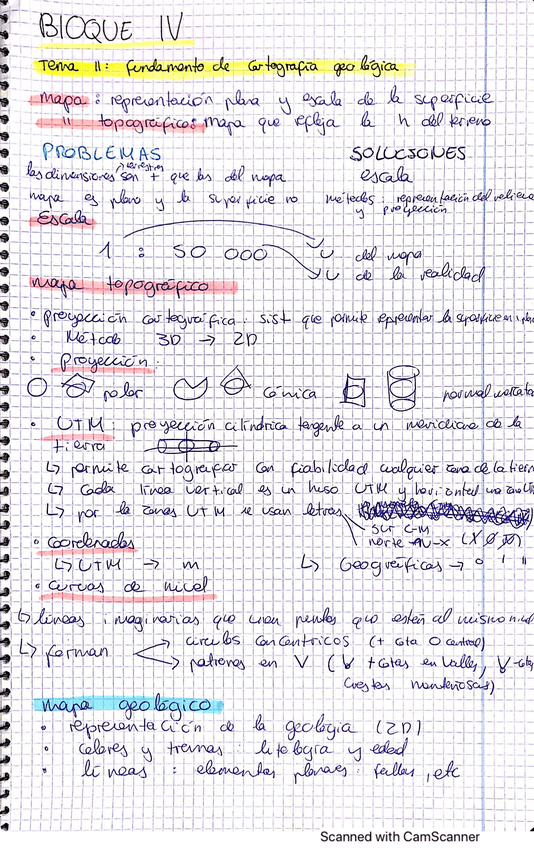 BLOQUE IV
Tema 11: fundamento de cartografía geológica
mapa: representación plana y escala de la superficie
" topográfico: mapa que refleja la h del terreno
PROBLEMAS SOLUCIONES
las dimensiones terrestres son + que las del mapa escala
mapa es plano y la superficie no métodos representación del relieve y proyección
Escala
1 : 50 000 U del mapa
U de la realidad
mapa topográfico
• proyección cartográfica: sist que permite representar la superficie en
• Método 3D → 2D
• Proyección:
polar cónica normal
• UTM: proyección cilíndrica tangente a un meridiano de la
tierra
↳ permite cartografiar con fiabilidad cualquier zona de la tierra
↳ Cada línea vertical es un huso UTM y horizontal una
↳ por la zonas UTM se usan letras
sur C-M
norte N-X
• Coordenadas
↳ UTM → m ↳ Geográficas → ° ' "
• Curvas de nivel
↳ líneas imaginarias que unen puntos que estén al mismo nivel
↳ forman → círculos concéntricos (+ cota O central)
→ patrones en V (V + cotas en valles, V - cotas
crestas montañosas)
mapa geológico
• representación de la geología (2D)
• colores y tramas: litología y edad
• líneas: elementos planares: fallas, etc
Scanned with CamScanner